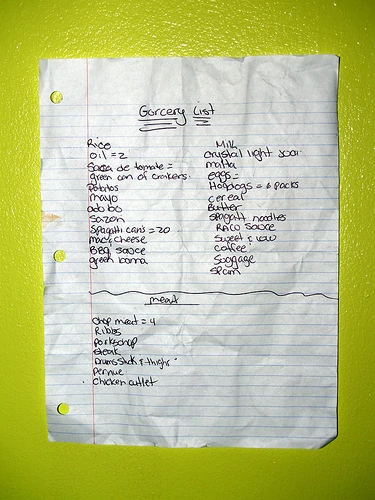 Gorcery List
Rice
oil = 2
Salsa de tomate =
green can of crakers.
potatos
mayo
adobo
sazon
Spagatti cans = 20
mac & cheese
BBQ sauce
green
Milk
crystal light
malta
eggs =
Hotdogs = 6 packs
cereal
Butter
spagatti noodles
RAGU sauce
sweet & low
coffee
Suasage
spam
meat
chop meat = 4
Ribbs
porkchop
steak
Drumstick & thighs
pernue
chicken cutlet